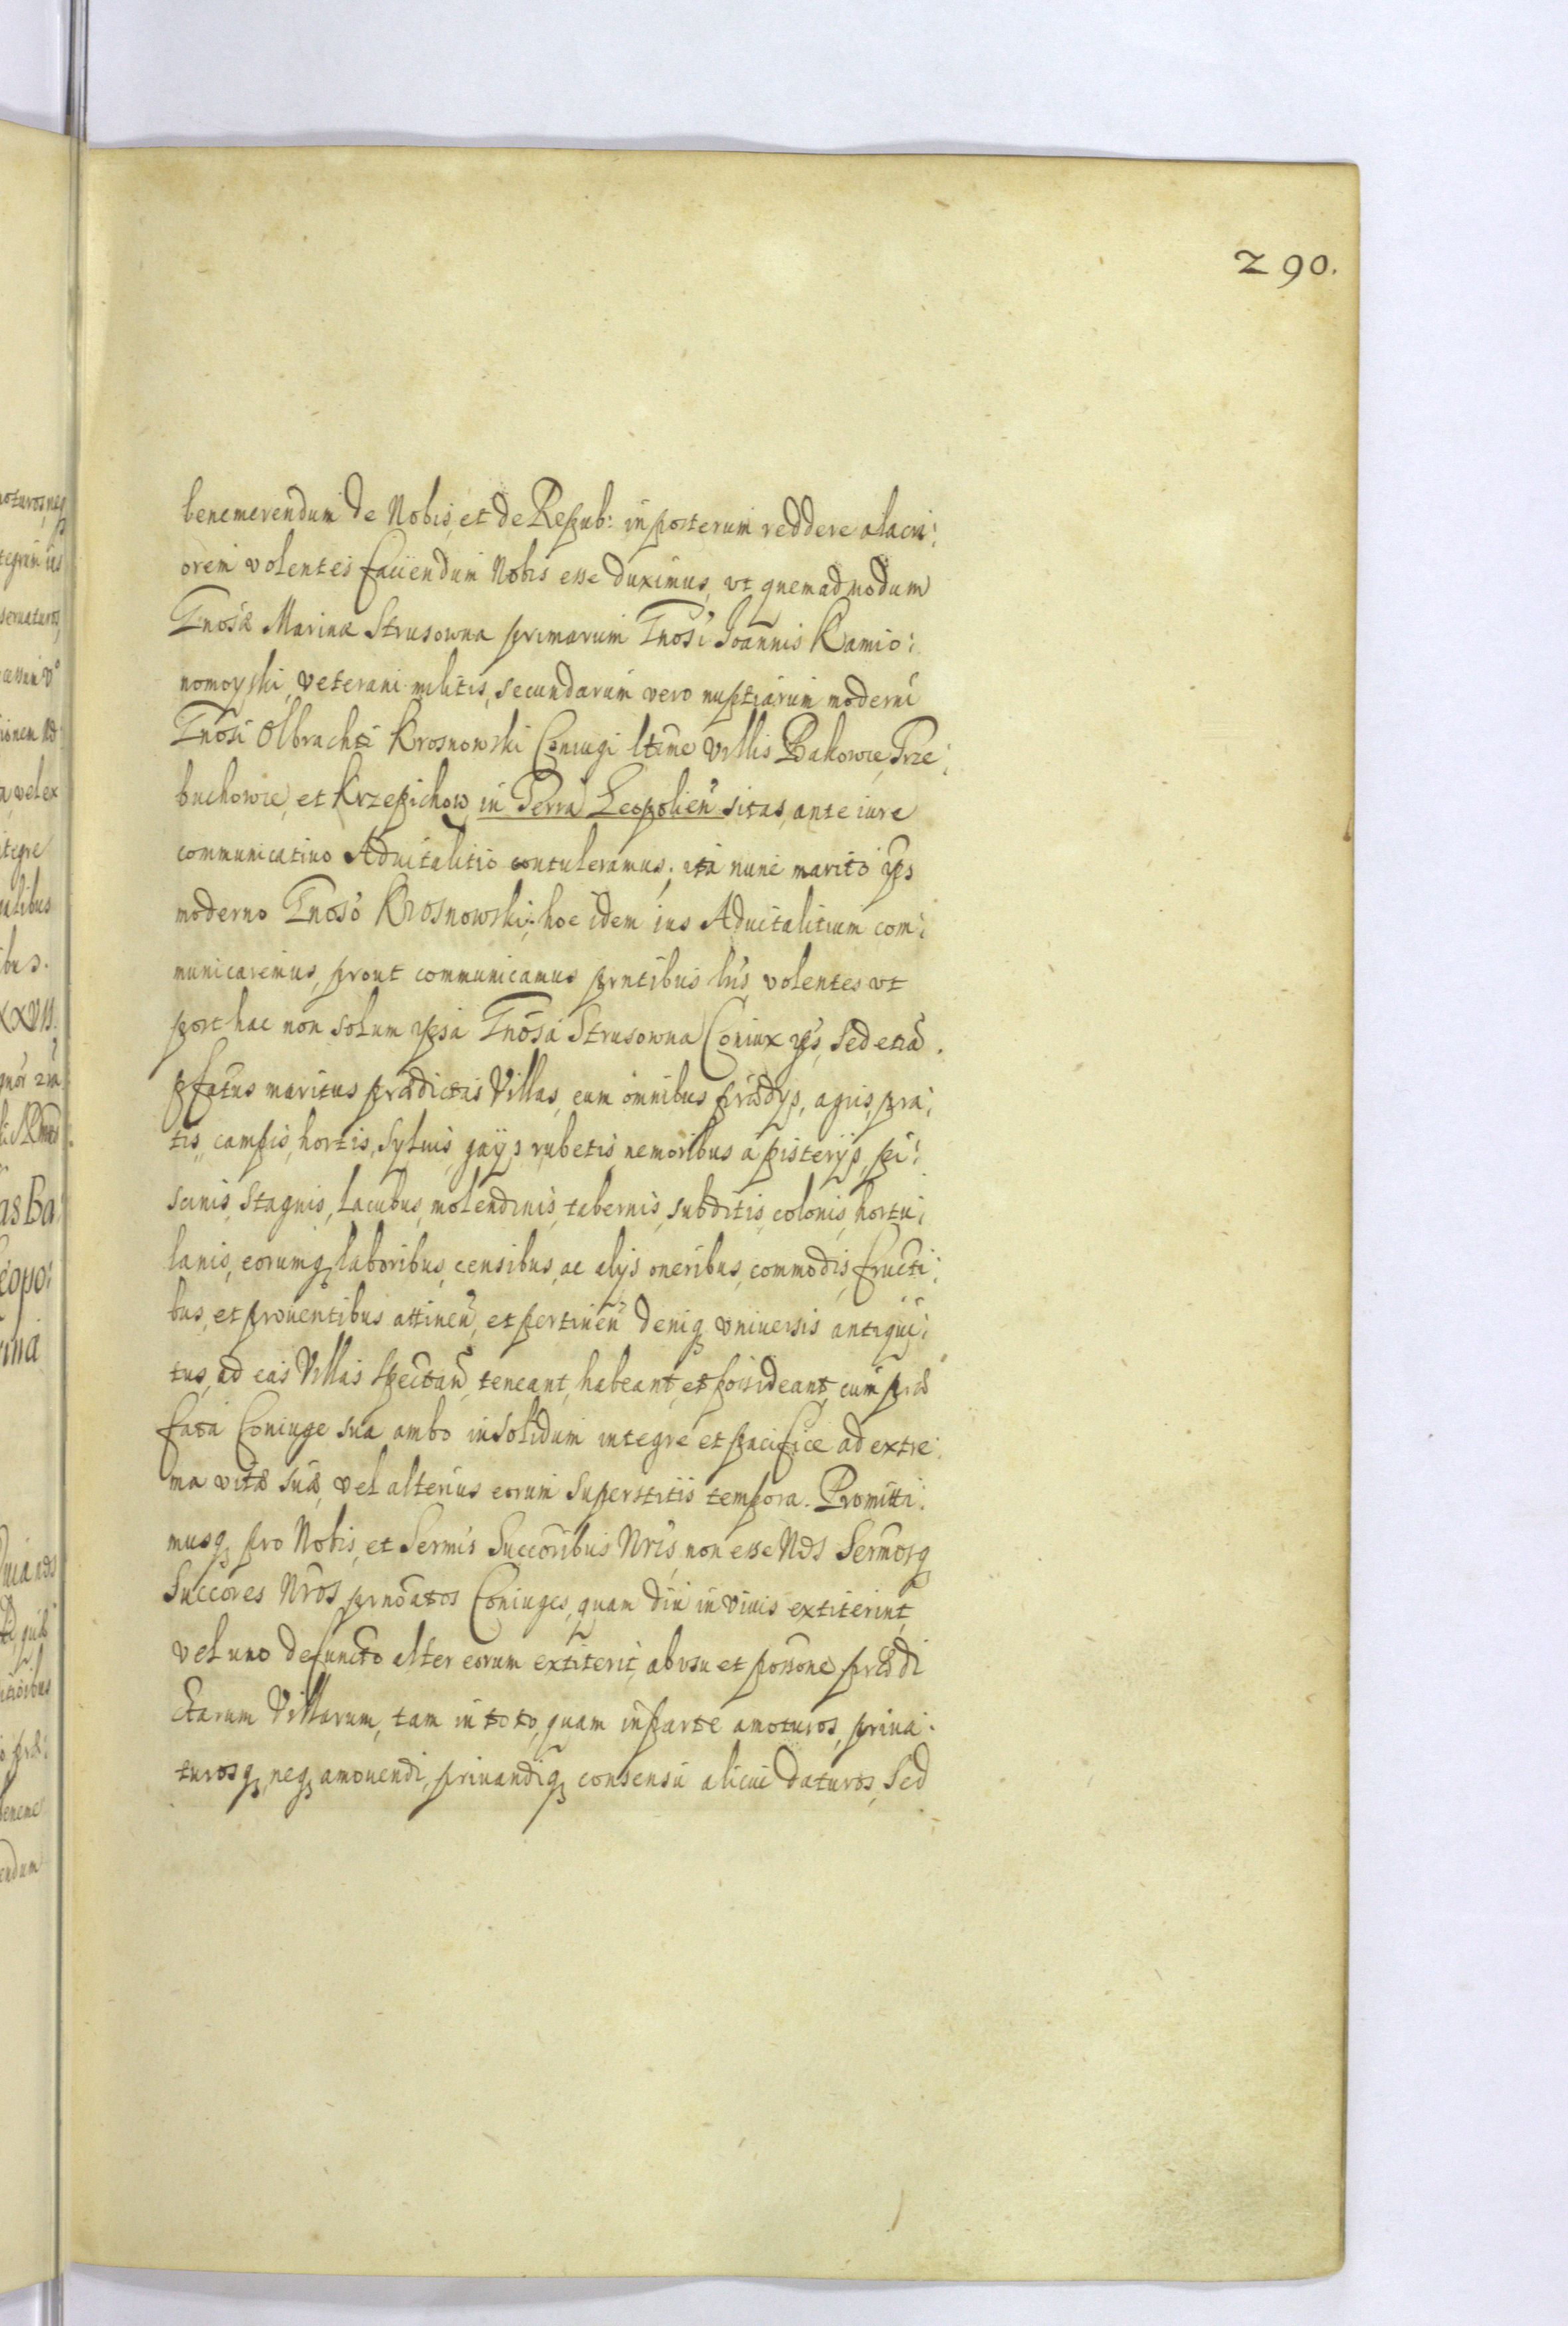 290.
benemerendum de Nobis, et de Repub: in posterum reddere alacri:
orem volentes faciendum Nobis esse duximus, vt quemadmodum
Gnosæ Marinæ Strusowna primarum Gnosi Joannis Kamio:
nomoyski, veterani militis, secundarum vero nuptiarum moderni
Gnosi Olbrachti Krosnowski Coniugi ltime Villis Bakowce, Trze:
buchowce, et Krzepichow, in Terra Leopolien sitas, ante iure
communicatiuo Aduitalitio contuleramus; ita nunc marito ips
moderno Gnoso Krosnowski; hoc idem ius Aduitalitium com:
municaremus, prout communicamus prntibus lris volentes vt
post hac non solum ipsa Gnosa Strusowna Coniux ips, sed etia
pfatus maritus prædictas Villas, cum omnibus prædijs, agris, pra:
tis, campis, hortis, syluis, gays rubetis nemoribus apisterijs, pi:
scinis, stagnis, lacubus, molendinis, tabernis, subditis, colonis, hortu:
lanis, eorumq laboribus, censibus, ac alys oneribus, commodis, fructi:
bus, et prouentibus attinen, et pertinen deniq vniuersis antiqui:
tus, ad eas Villas spectan, teneant, habeant, et possideant, cum præ
fata Coniuge sua ambo insolidum integre et pacifice ad extre:
ma vitæ suæ, vel alterius eorum superstitis tempora. Promitti:
musq pro Nobis, et Sermis Succoribus Nris, non esse Nos Sermosq
Succores Nros prnoatos Coniuges, quam diu in viuis extiterint,
vel uno defuncto alter eorum extiterit, ab vsu et possone prædi
ctarum Villarum, tam in toto, quam in parte amoturos, priua:
turosq, neq amouendi, priuandiq consensu alicui daturos, Sed